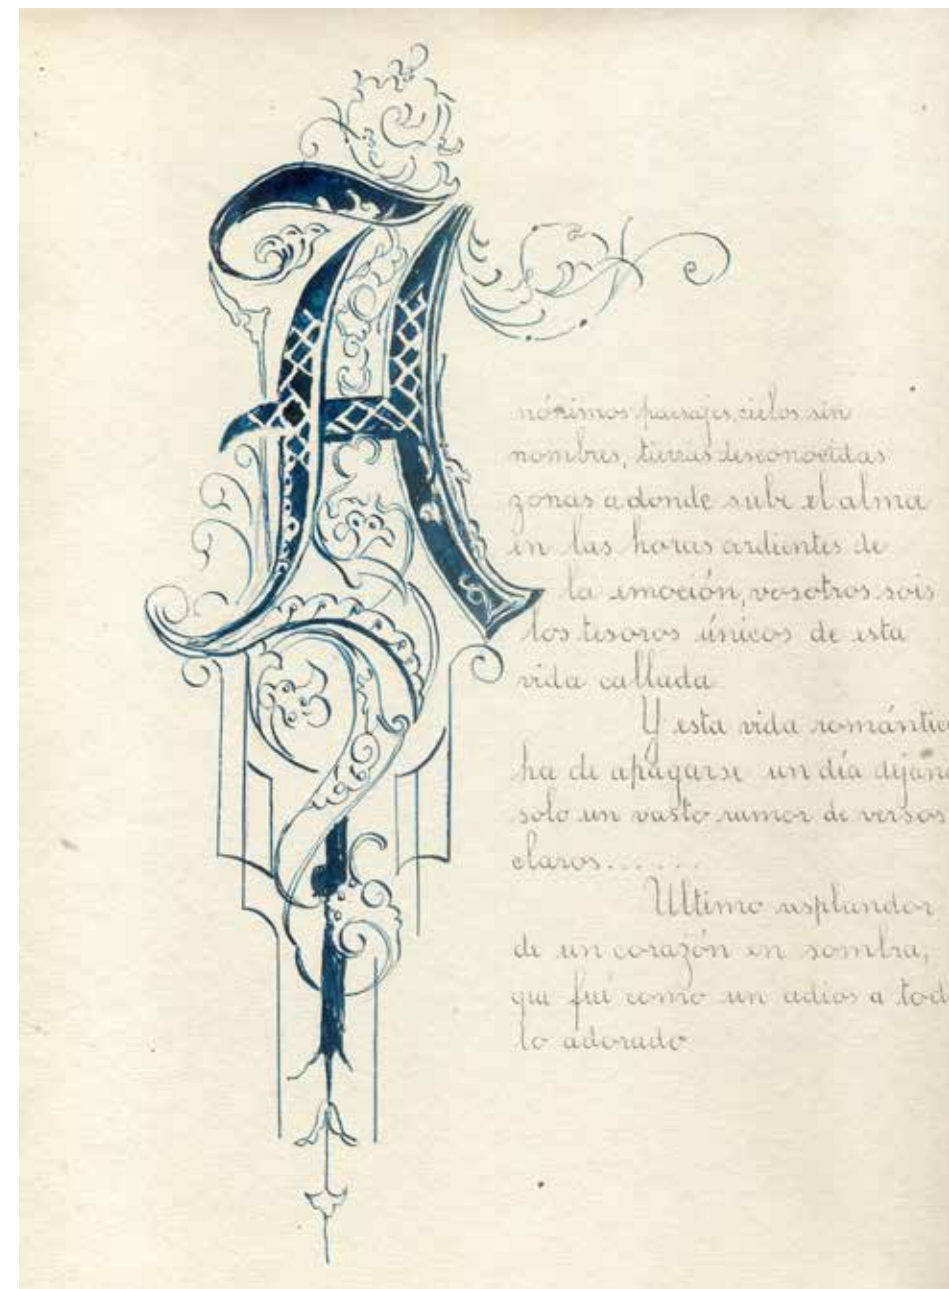 A
nónimos paisajes, cielos sin
nombres, tierras desconocidas
zonas a donde sube el alma
en las horas ardientes de
la emoción, vosotros sois
los tesoros únicos de esta
vida callada
Y esta vida romántic
ha de apagarse un día dejan
solo un vasto rumor de versos
claros.......
Ultimo resplandor
de un corazón en sombra,
que fuí como un adios a tod
lo adorado